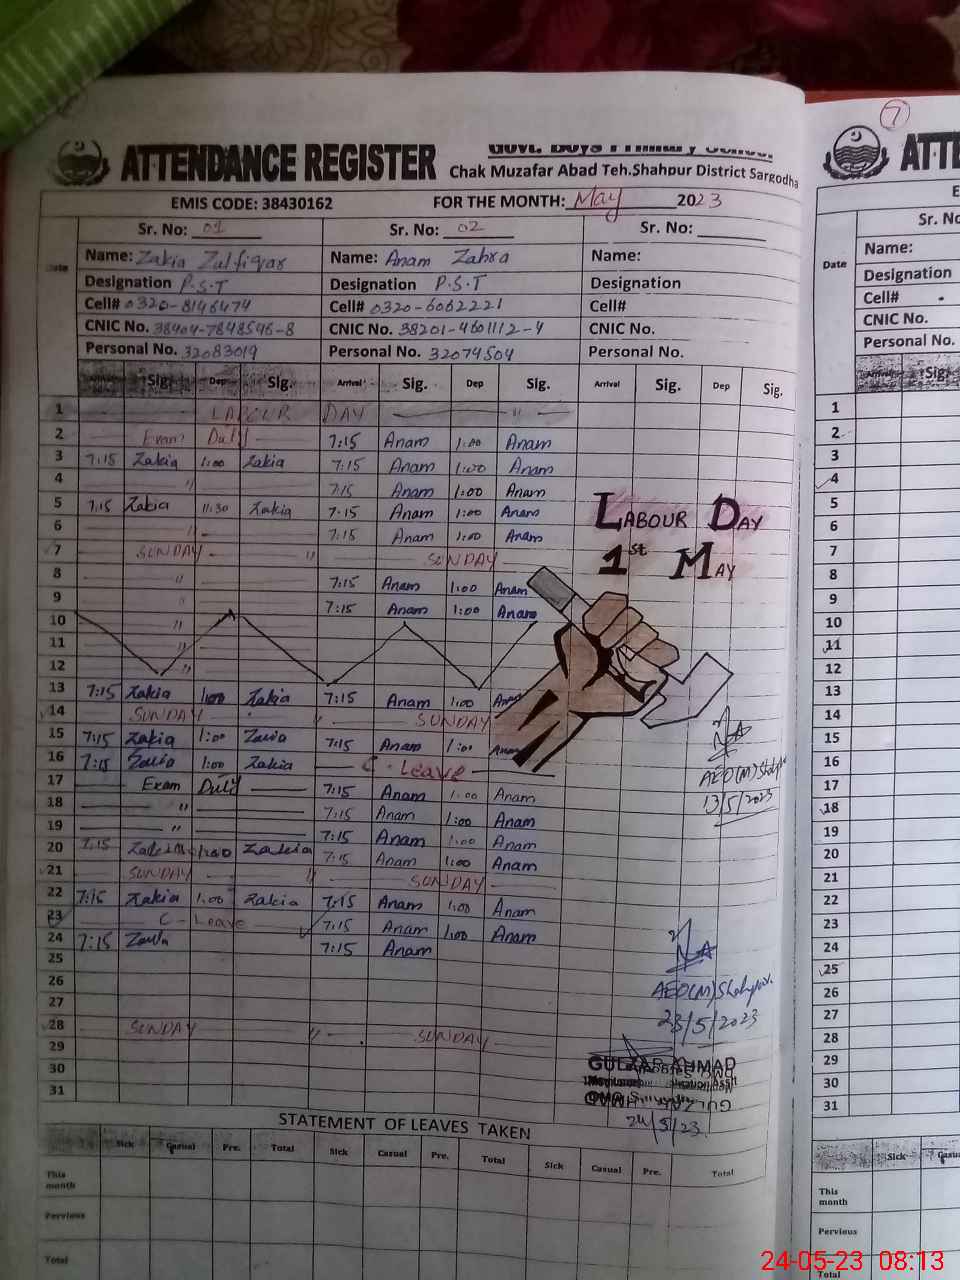 Govt. Boys Primary School
ATTENDANCE REGISTER
Chak Muzafar Abad Teh.Shahpur District Sargodha
EMIS CODE: 38430162 FOR THE MONTH: May 2023
Sr. No: 01 Sr. No: 02 Sr. No:
Date Name: Zakia Zulfiqar Name: Anam Zahra Name:
Designation P.S.T Designation P.S.T Designation
Cell# 0320-8146474 Cell# 0320-6062221 Cell#
CNIC No. 38404-7848546-8 CNIC No. 38201-4601112-4 CNIC No.
Personal No. 32083019 Personal No. 32074504 Personal No.
Arrival Sig. Dep Sig. Arrival Sig. Dep Sig. Arrival Sig. Dep Sig.
1 LABOUR DAY "
2 Exam Duty 7:15 Anam 1:00 Anam
3 7:15 Zakia 1:00 Zakia 7:15 Anam 1:00 Anam
4 " 7:15 Anam 1:00 Anam
5 7:15 Zakia 11:30 Zakia 7:15 Anam 1:00 Anam
6 " 7:15 Anam 1:00 Anam
7 SUNDAY " SUNDAY
8 " 7:15 Anam 1:00 Anam
9 " 7:15 Anam 1:00 Anam
10 "
11 "
12 "
13 7:15 Zakia 1:00 Zakia 7:15 Anam 1:00 Anam
14 SUNDAY " SUNDAY
15 7:15 Zakia 1:00 Zakia 7:15 Anam 1:00 Anam
16 7:15 Zakia 1:00 Zakia C - Leave
17 Exam Duty 7:15 Anam 1:00 Anam
18 " 7:15 Anam 1:00 Anam
19 " 7:15 Anam 1:00 Anam
20 7:15 Zakia 1:00 Zakia 7:15 Anam 1:00 Anam
21 SUNDAY " SUNDAY
22 7:15 Zakia 1:00 Zakia 7:15 Anam 1:00 Anam
23 C - Leave 7:15 Anam 1:00 Anam
24 7:15 Zakia 7:15 Anam
25
26
27
28 SUNDAY " SUNDAY
29
30
31
LABOUR DAY
1st MAY
AEO(M) Shahpur
13/5/2023
AEO(M) Shahpur.
23/5/2023
GULZAR AHMAD
24/5/23.
STATEMENT OF LEAVES TAKEN
Sick Casual Pre. Total Sick Casual Pre. Total Sick Casual Pre. Total
This month
Pervious
Total
7
ATT
Sr. No
Date Name:
Designation
Cell#
CNIC No.
Personal No.
Arrival Sig
1
2
3
4
5
6
7
8
9
10
11
12
13
14
15
16
17
18
19
20
21
22
23
24
25
26
27
28
29
30
31
Sick Casua
This month
Pervious
Total
24-05-23 08:13